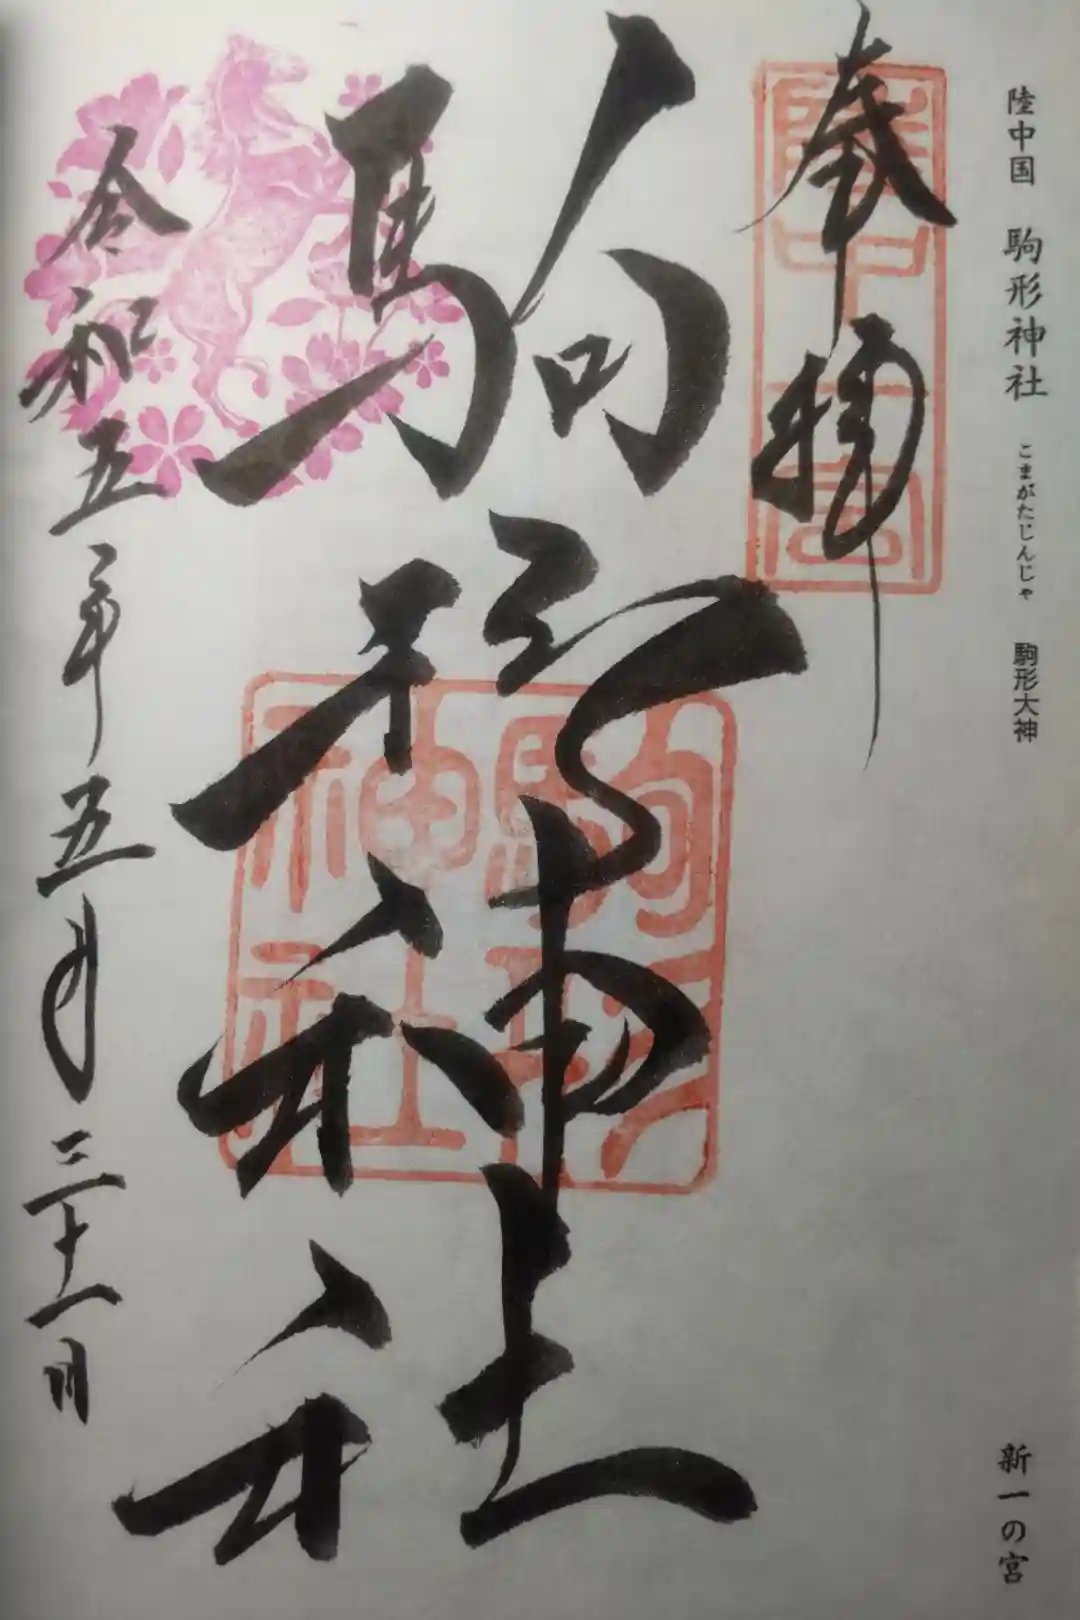 陸中国 駒形神社 こまがたじんじゃ 駒形大神 新一の宮
奉拝
陸中一宮
駒形神社
駒形
神社
令和五年五月三十一日